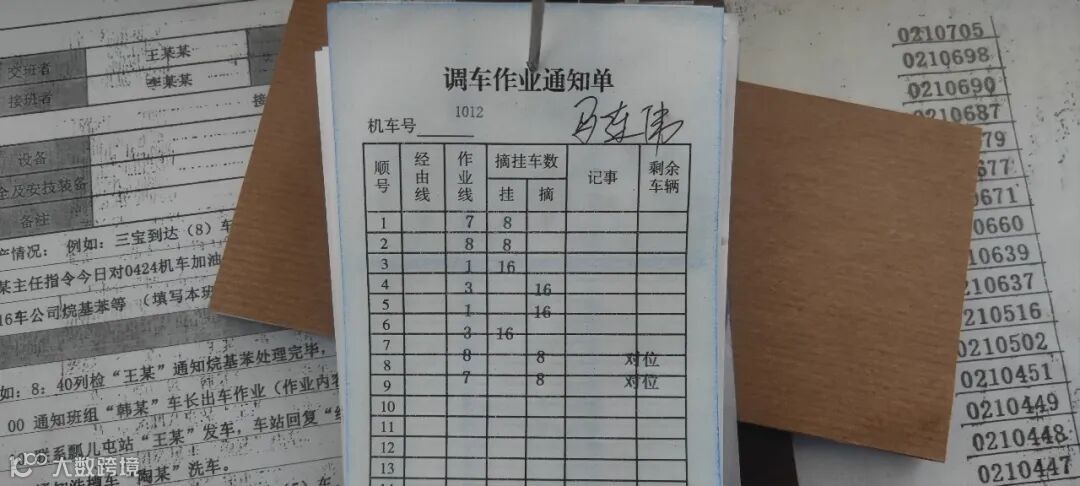 交班者 王某某
接班者 李某某
接
设备
全及安技装备
备注
产情况: 例如: 三宝到达 (8) 车
某主任指令今日对0424机车加油
16车公司烷基苯等 (填写本班
如: 8: 40列检“王某”通知烷基苯处理完毕,
00 通知班组“韩某”车长出车作业(作业内容
系瓢儿屯站“王某”发车, 车站回复“
“陶某”洗车。
大数跨境
调车作业通知单
机车号 1012
顺号 经由线 作业线 摘挂车数 记事 剩余车辆
挂 摘
1 7 8
2 8 8
3 1 16
4 3 16
5 1 16
6 3 16
7
8 8 8 对位
9 7 8 对位
10
11
12
13
0210705
0210698
0210690
0210687
79
0677
0671
0660
0210639
0210637
0210516
0210502
0210451
0210449
0210448
0210447